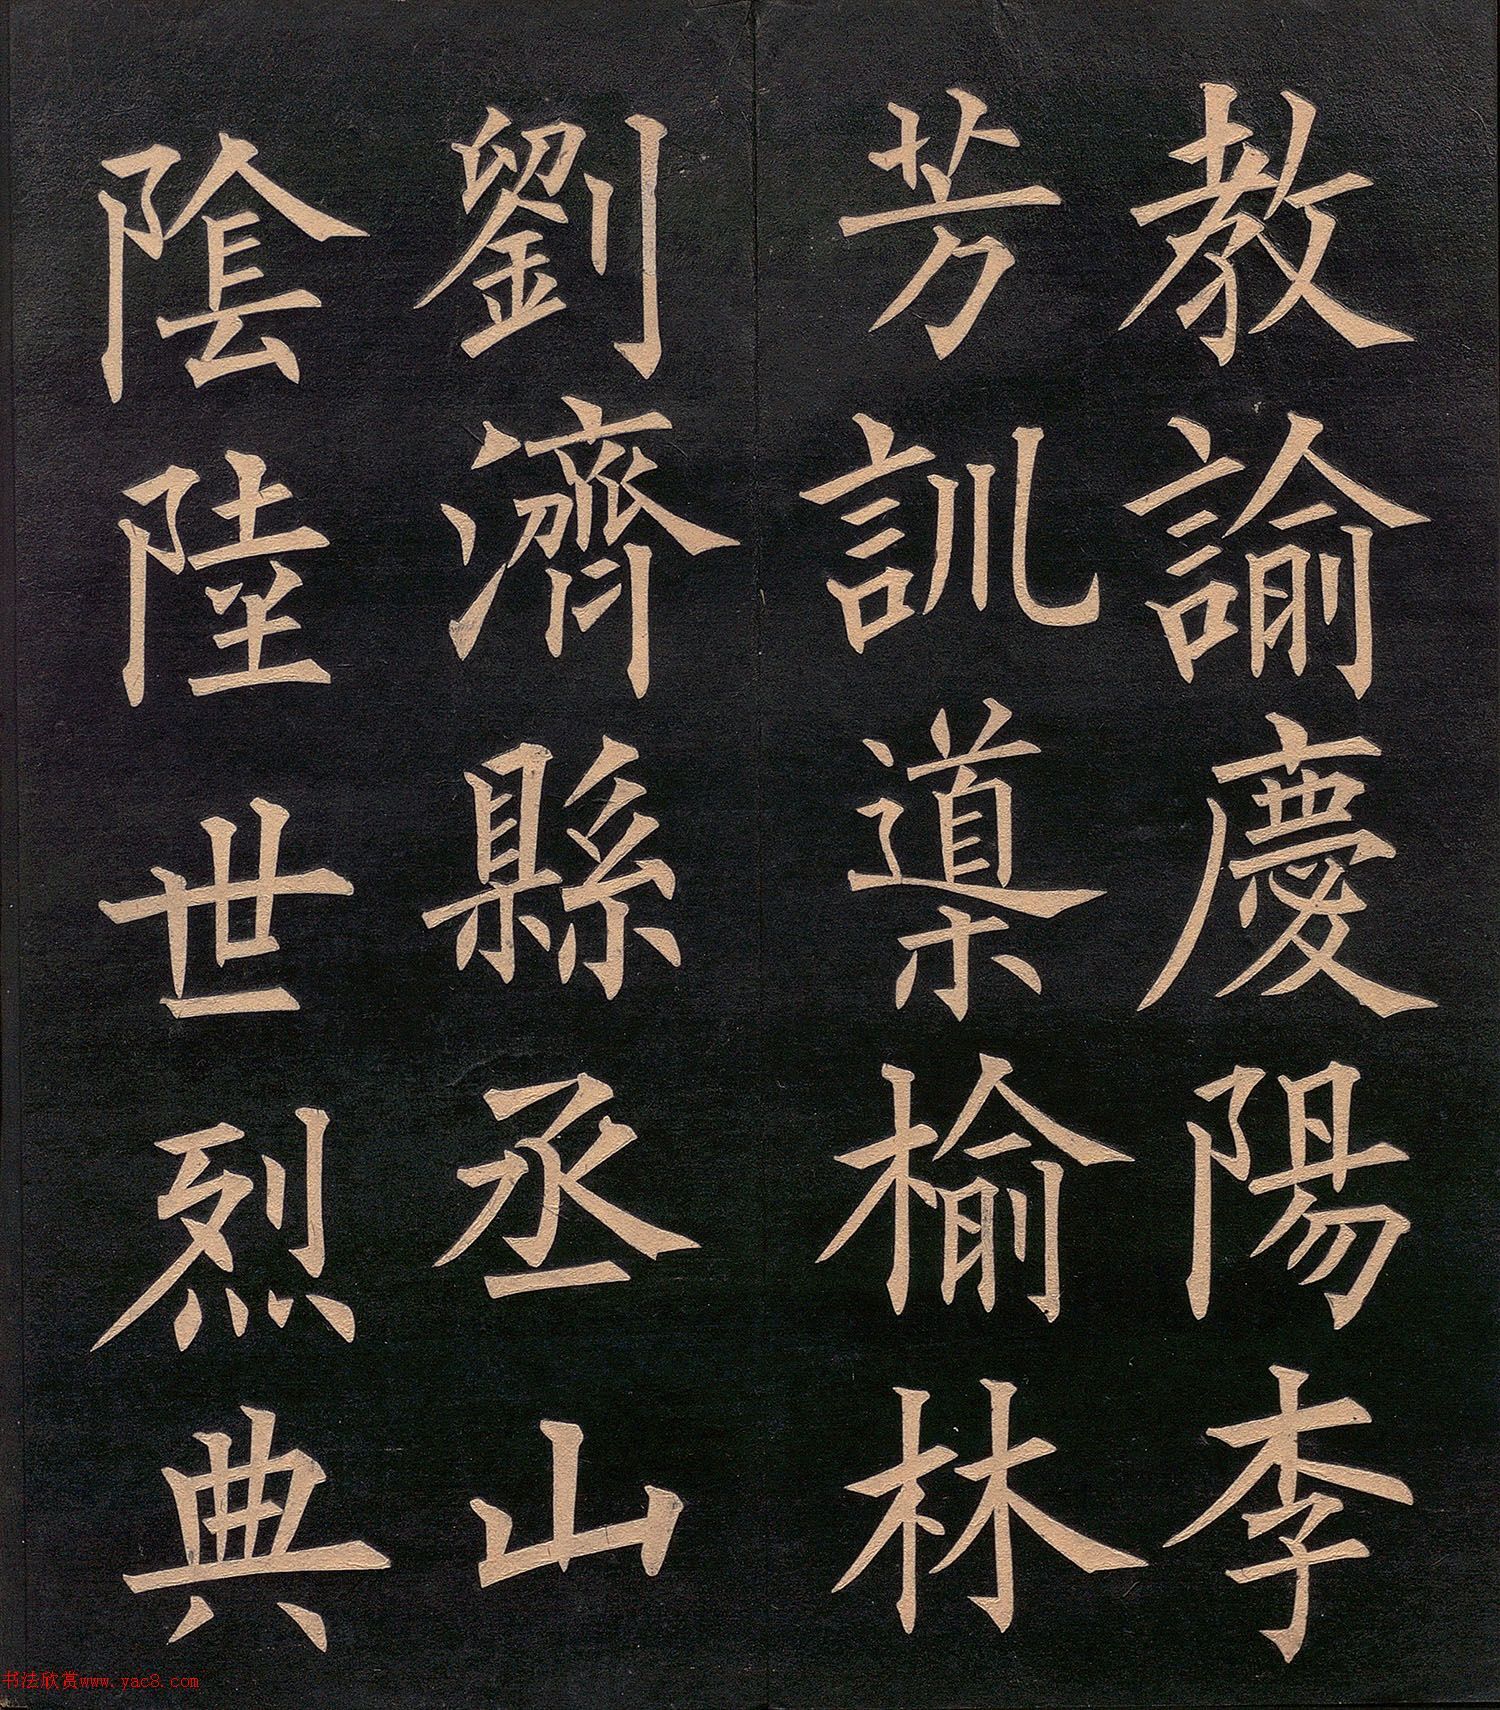 教諭慶陽李
芳訓導榆林
劉濟縣丞山
陰陸世烈典
书法欣赏www.yac8.com